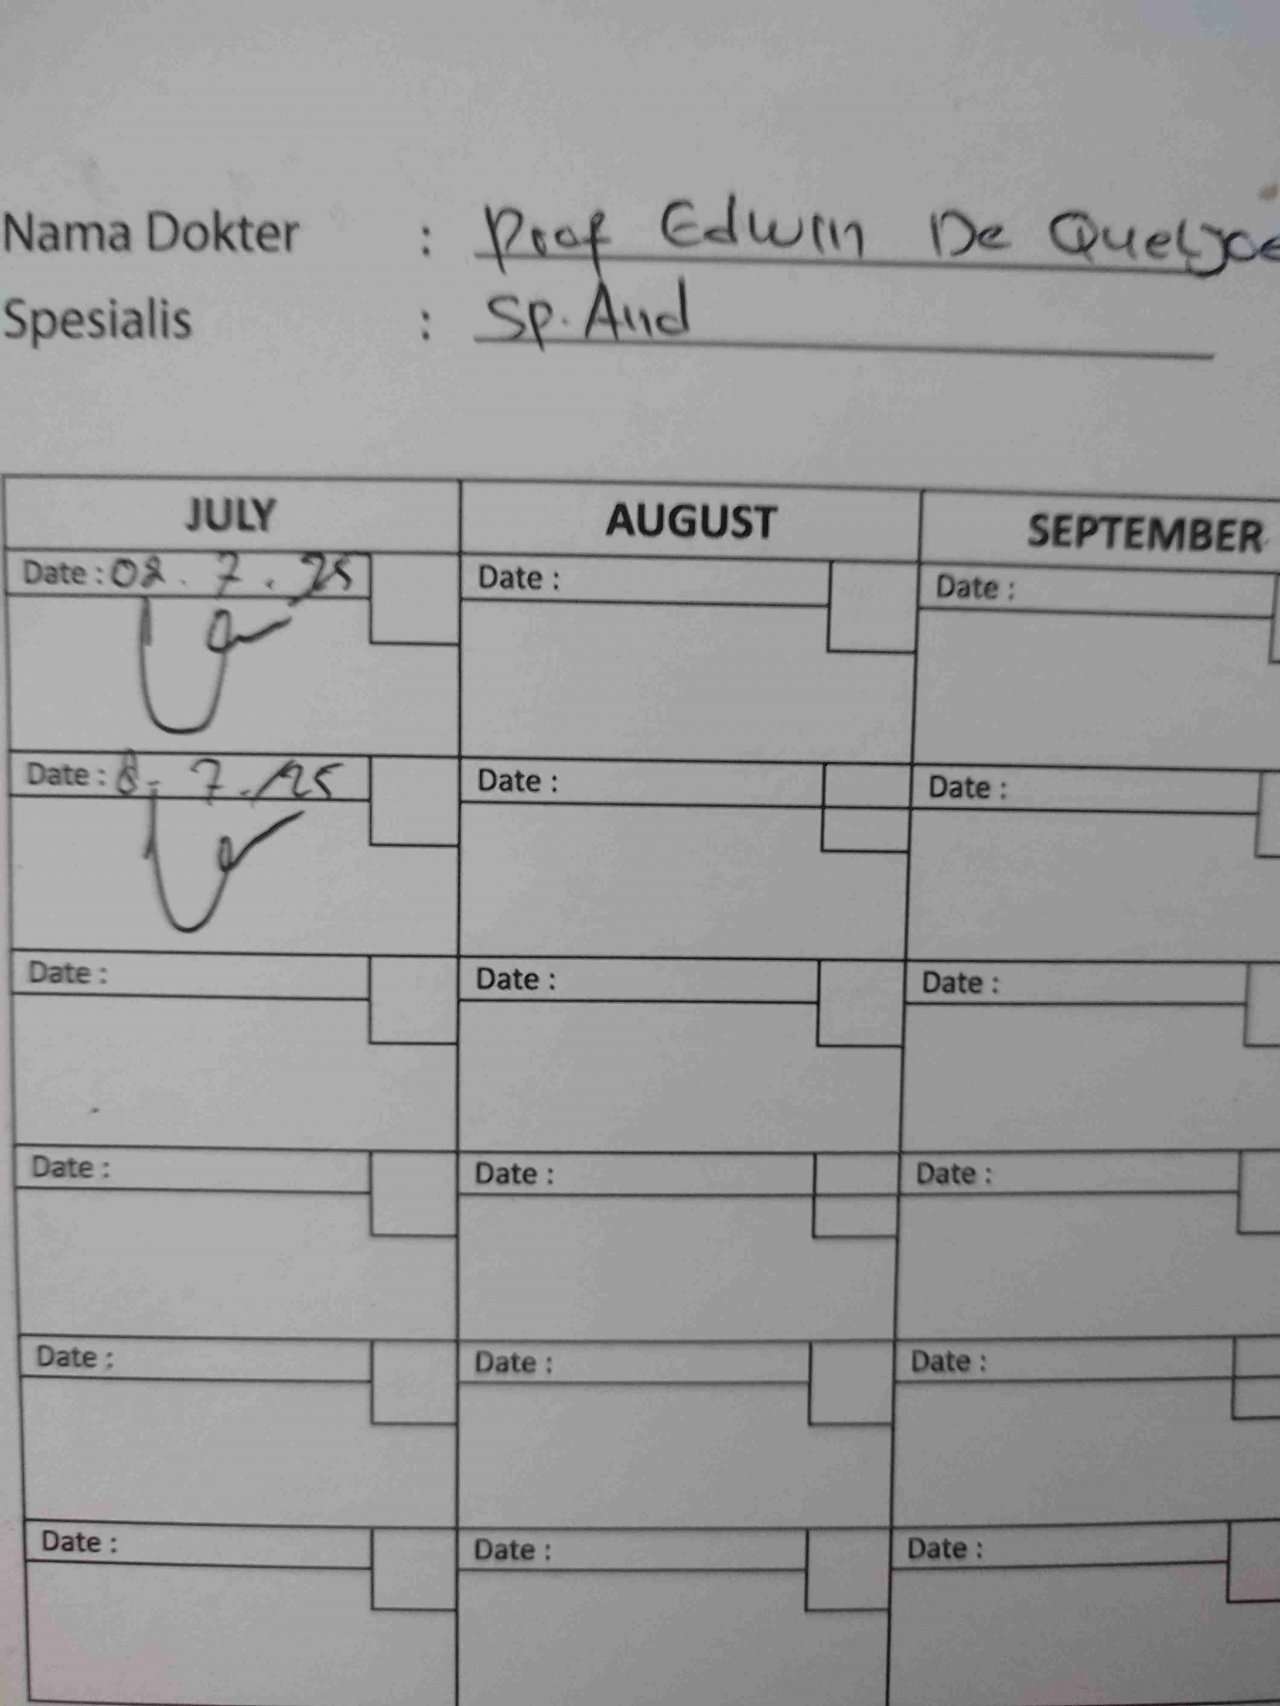 Nama Dokter : Prof Edwin De Queljoe
Spesialis : Sp. And
JULY AUGUST SEPTEMBER
Date : 02 . 7 . 25 Date : Date :
Date : 8. 7. /25 Date : Date :
Date : Date : Date :
Date : Date : Date :
Date : Date : Date :
Date : Date : Date :